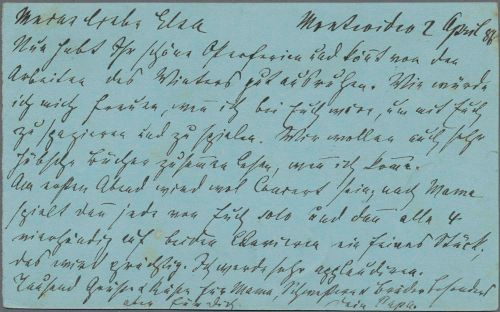 Meine liebe Elsa Montevideo 2 April 88
Nun habt Ihr schöne Osterferien und könnt von den
Arbeiten des Winters gut ausruhen. Wie würde
ich mich freuen, wenn ich bei Euch wäre, um mit Euch
zu spazieren und zu spielen. Wir wollen auch sehr
hübsche Bücher zusammen lesen, wenn ich komme.
Am ersten Abend wird wol Concert sein, nach Mama
spielt dann jede von Euch solo und dann alle 4
vierhändig auf beiden Clavieren ein feines Stück.
das wird prächtig. Ich werde sehr applaudiren.
Tausend Grüße & Küße für Mama, Schwestern & Brüder besonders
aber für dich dein Papa.